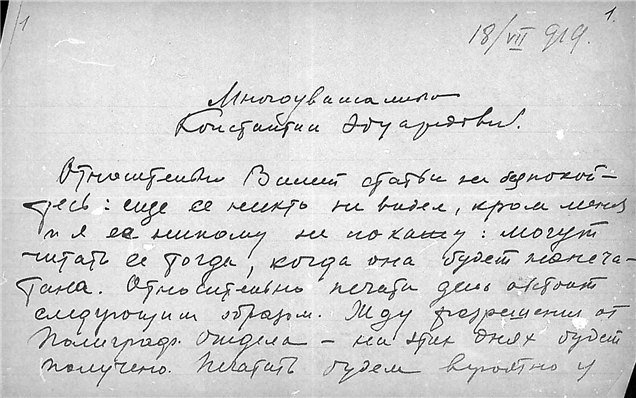 1
1.
18/VII 919.
Многоуважаемый
Константин Эдуардович!
Относительно Вашей статьи не беспокой-
тесь: еще ее никто не видел, кроме меня
и я ее никому не покажу: могут
читать ее тогда, когда она будет напеча-
тана. Относительно печати дело обстоит
следующим образом. Жду разрешения от
Полиграф. отдела – на этих днях будет
получено. Печатать будем вероятно у